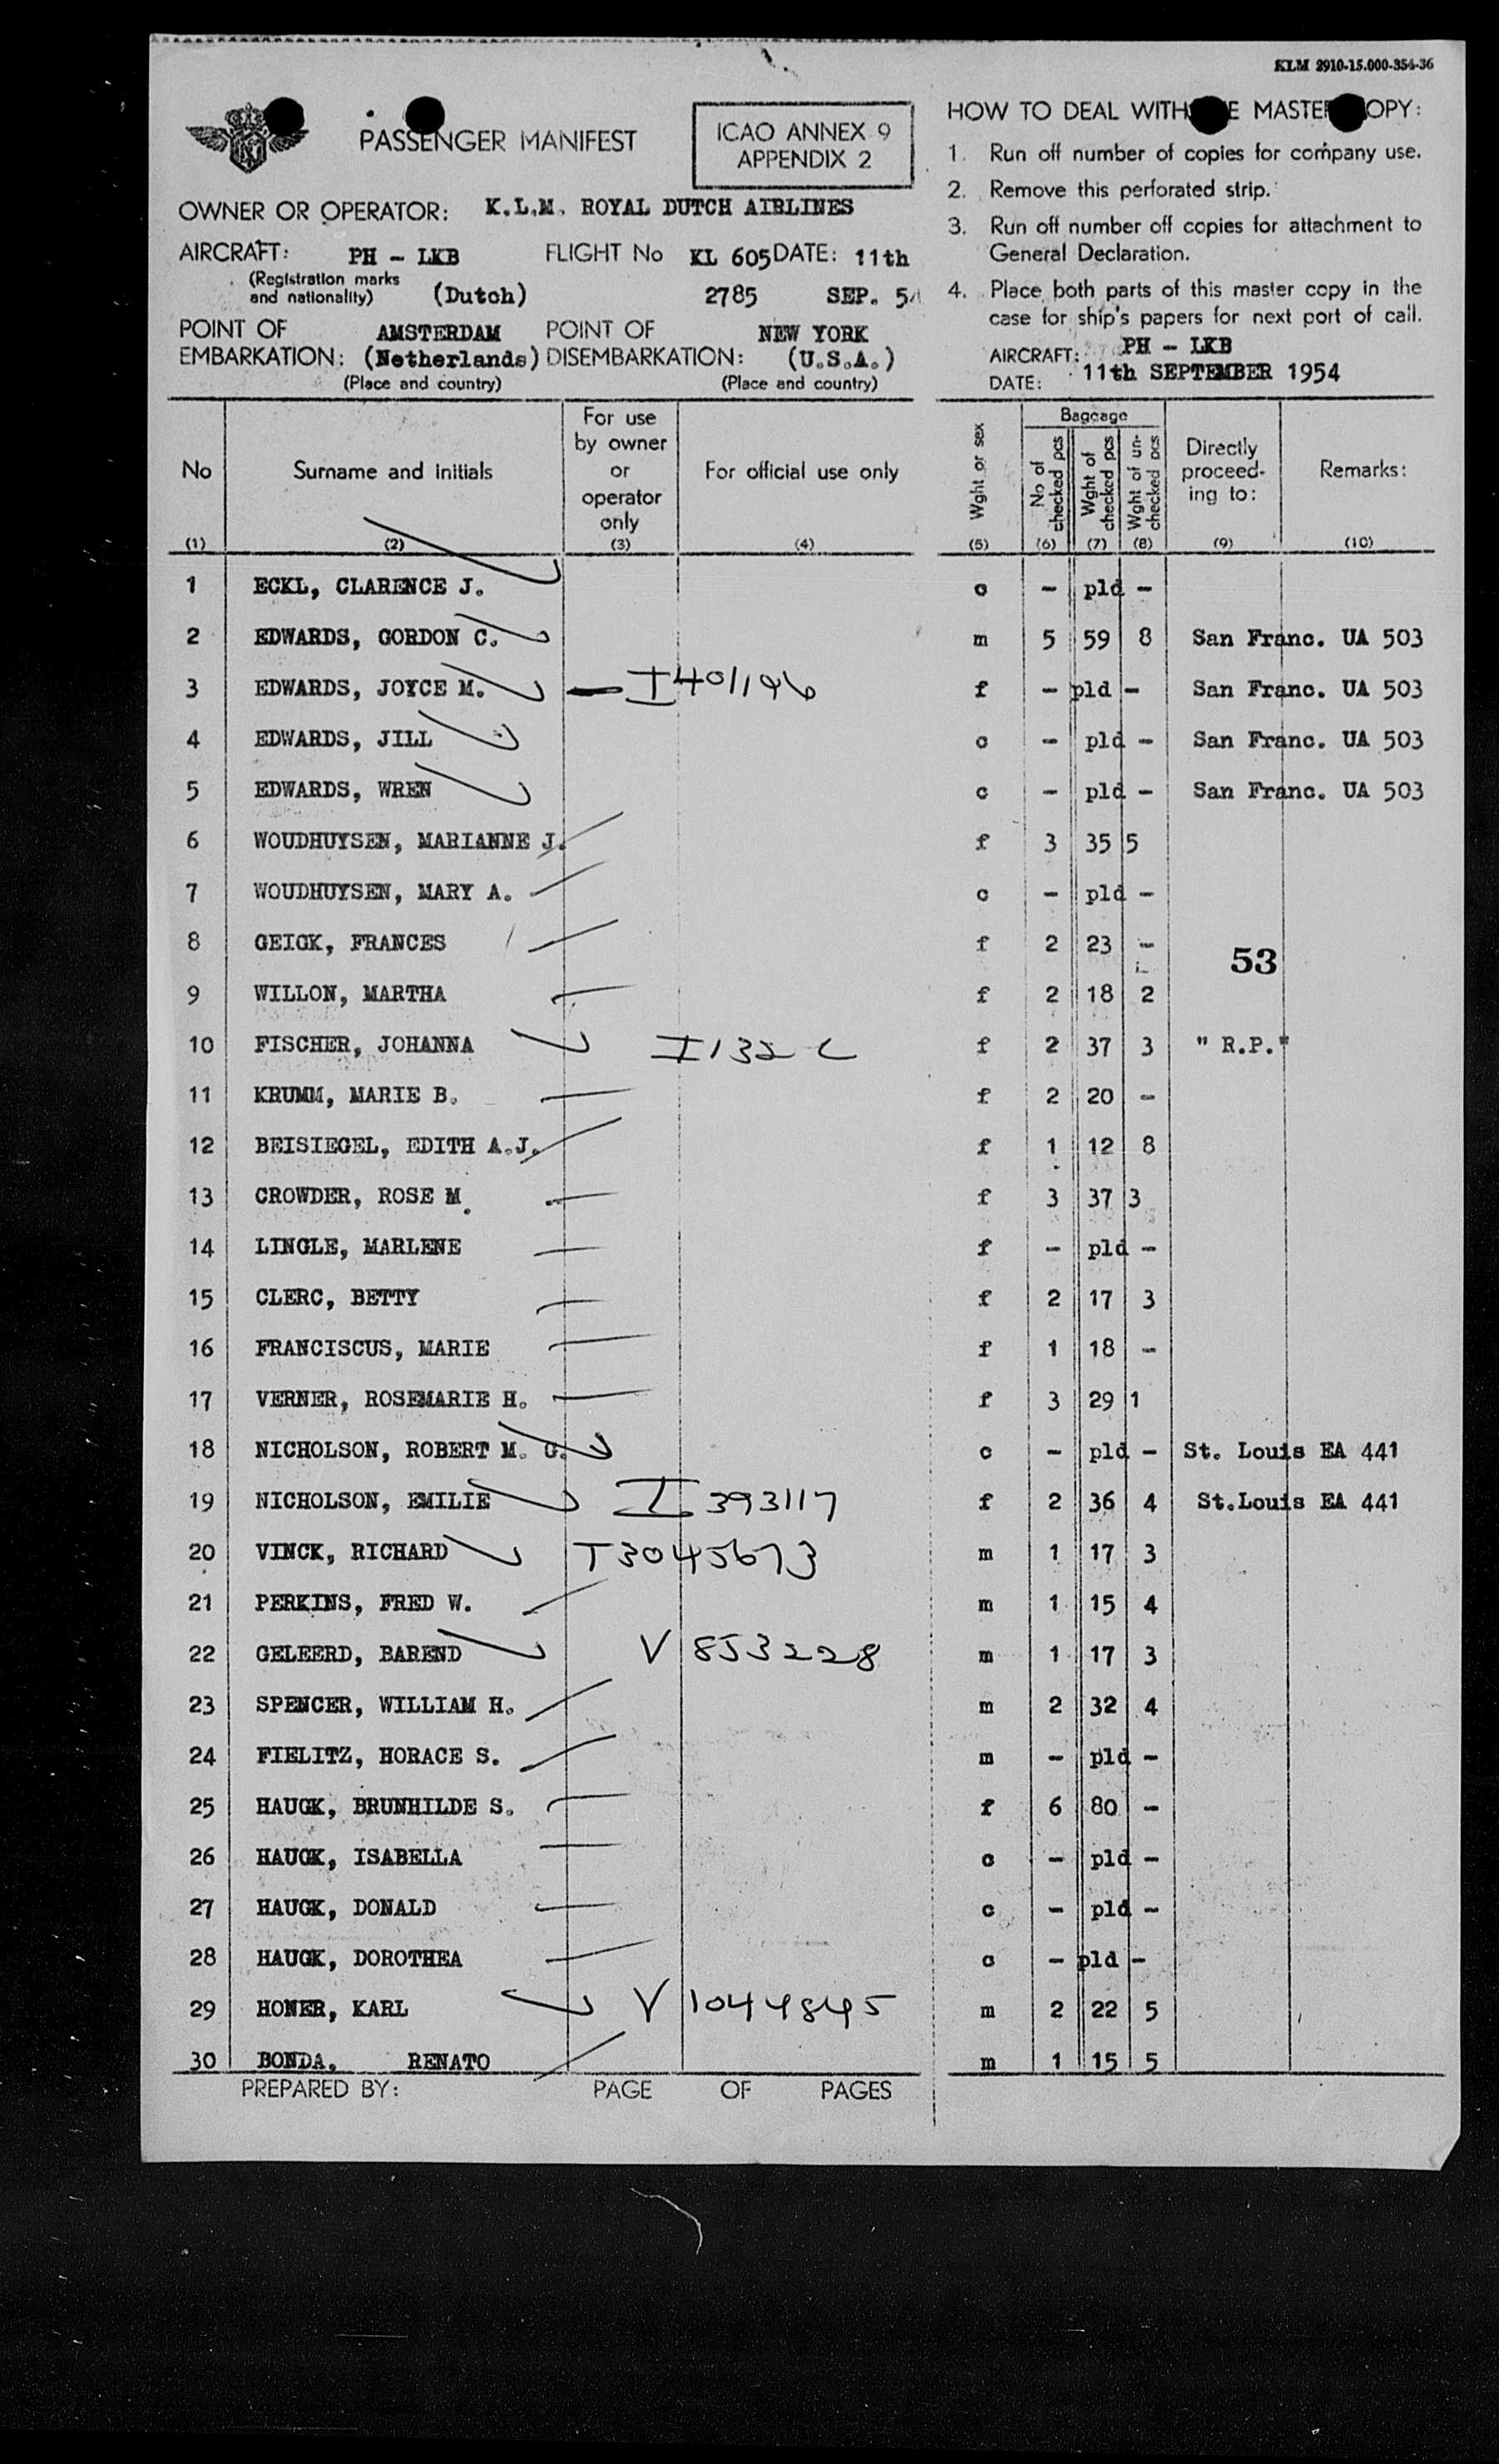 KLM 2910-15.000-354-36
PASSENGER MANIFEST
ICAO ANNEX 9
APPENDIX 2
OWNER OR OPERATOR: K.L.M. ROYAL DUTCH AIRLINES
AIRCRAFT: PH - LKB FLIGHT No KL 605 DATE: 11th
(Registration marks
and nationality) (Dutch) 2785 SEP. 54
POINT OF AMSTERDAM POINT OF NEW YORK
EMBARKATION: (Netherlands) DISEMBARKATION: (U.S.A.)
(Place and country) (Place and country)
HOW TO DEAL WITH E MASTER OPY:
1. Run off number of copies for company use.
2. Remove this perforated strip.
3. Run off number off copies for attachment to
General Declaration.
4. Place both parts of this master copy in the
case for ship's papers for next port of call.
AIRCRAFT: PH - LKB
DATE: 11th SEPTEMBER 1954
No Surname and Initials For use by owner or operator only For official use only Wght or sex Baggage No of checked pcs Wght of checked pcs Wght of un-checked pcs Directly proceed-ing to: Remarks:
(1) (2) (3) (4) (5) (6) (7) (8) (9) (10)
1 ECKL, CLARENCE J. c - pld -
2 EDWARDS, GORDON C. m 5 59 8 San Franc. UA 503
3 EDWARDS, JOYCE M. I401196 f - pld - San Franc. UA 503
4 EDWARDS, JILL c - pld - San Franc. UA 503
5 EDWARDS, WREN c - pld - San Franc. UA 503
6 WOUDHUYSEN, MARIANNE J. f 3 35 5
7 WOUDHUYSEN, MARY A. c - pld -
8 GEIGK, FRANCES f 2 23 -
53
9 WILLON, MARTHA f 2 18 2
10 FISCHER, JOHANNA I132 C f 2 37 3 " R.P."
11 KRUMM, MARIE B. f 2 20 -
12 BEISIEGEL, EDITH A.J. f 1 12 8
13 CROWDER, ROSE M. f 3 37 3
14 LINGLE, MARLENE f - pld -
15 CLERC, BETTY f 2 17 3
16 FRANCISCUS, MARIE f 1 18 -
17 VERNER, ROSEMARIE H. f 3 29 1
18 NICHOLSON, ROBERT M. G. c - pld - St. Louis EA 441
19 NICHOLSON, EMILIE I 393117 f 2 36 4 St.Louis EA 441
20 VINCK, RICHARD T3045673 m 1 17 3
21 PERKINS, FRED W. m 1 15 4
22 GELEERD, BAREND V 853228 m 1 17 3
23 SPENCER, WILLIAM H. m 2 32 4
24 FIELITZ, HORACE S. m - pld -
25 HAUGK, BRUNHILDE S. f 6 80 -
26 HAUGK, ISABELLA c - pld -
27 HAUGK, DONALD c - pld -
28 HAUGK, DOROTHEA c - pld -
29 HONER, KARL V 1044845 m 2 22 5
30 BONDA, RENATO m 1 15 5
PREPARED BY: PAGE OF PAGES